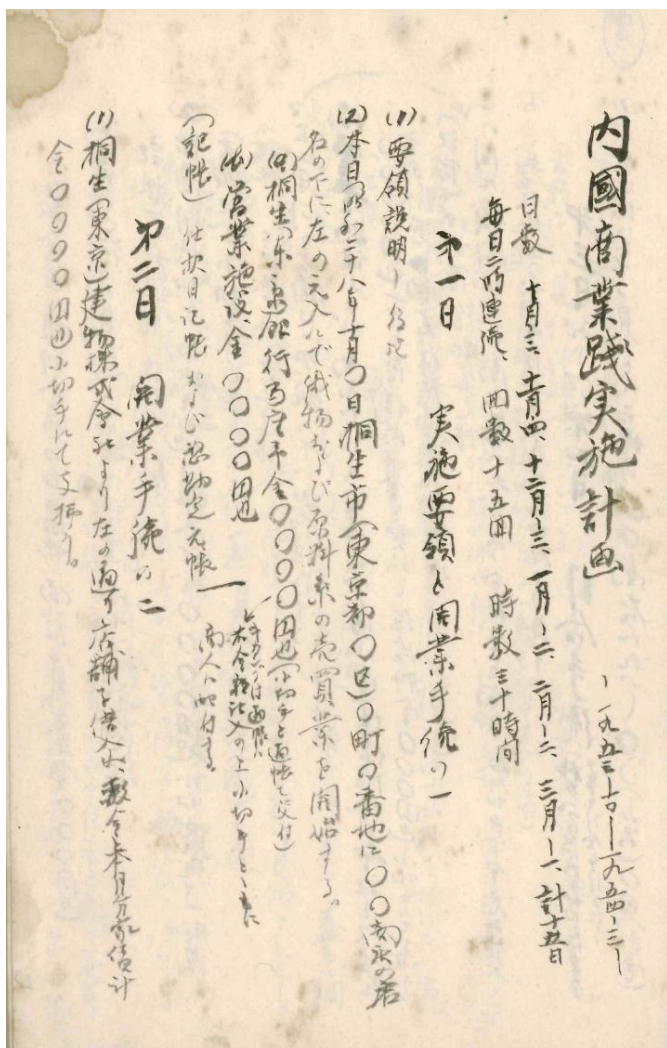 内國商業踐実施計画
―一九五三―十〇―一九五四―三―
日数 十月―三、十一月―四、十二月―三、一月―二、二月―二、三月―一、計十五日
毎日二時連続、回数十五回 時数三十時間
第一日 実施要領と開業手続の一
(1)要領説明
(2)本日(昭和二十八年十月〇日桐生市(東京都〇区)〇町〇番地に〇〇商店の店
名の下に、左の元入れで織物および原料糸の売買業を開始する。
(イ)桐生(東京)銀行当座予金〇〇〇〇円也(小切手と通帳を交付)
通帳に
本金額記入の上小切手とともに
商人に交付する。
(ロ)営業施設、金〇〇〇〇円也
(記帳)仕訳日記帳および総勘定元帳
第二日 開業手続の二
(1)桐生(東京)建物株式会社より左の通り店舗を借入れ、敷金本月分家賃計
金〇〇〇〇円也小切手にて支拂う。